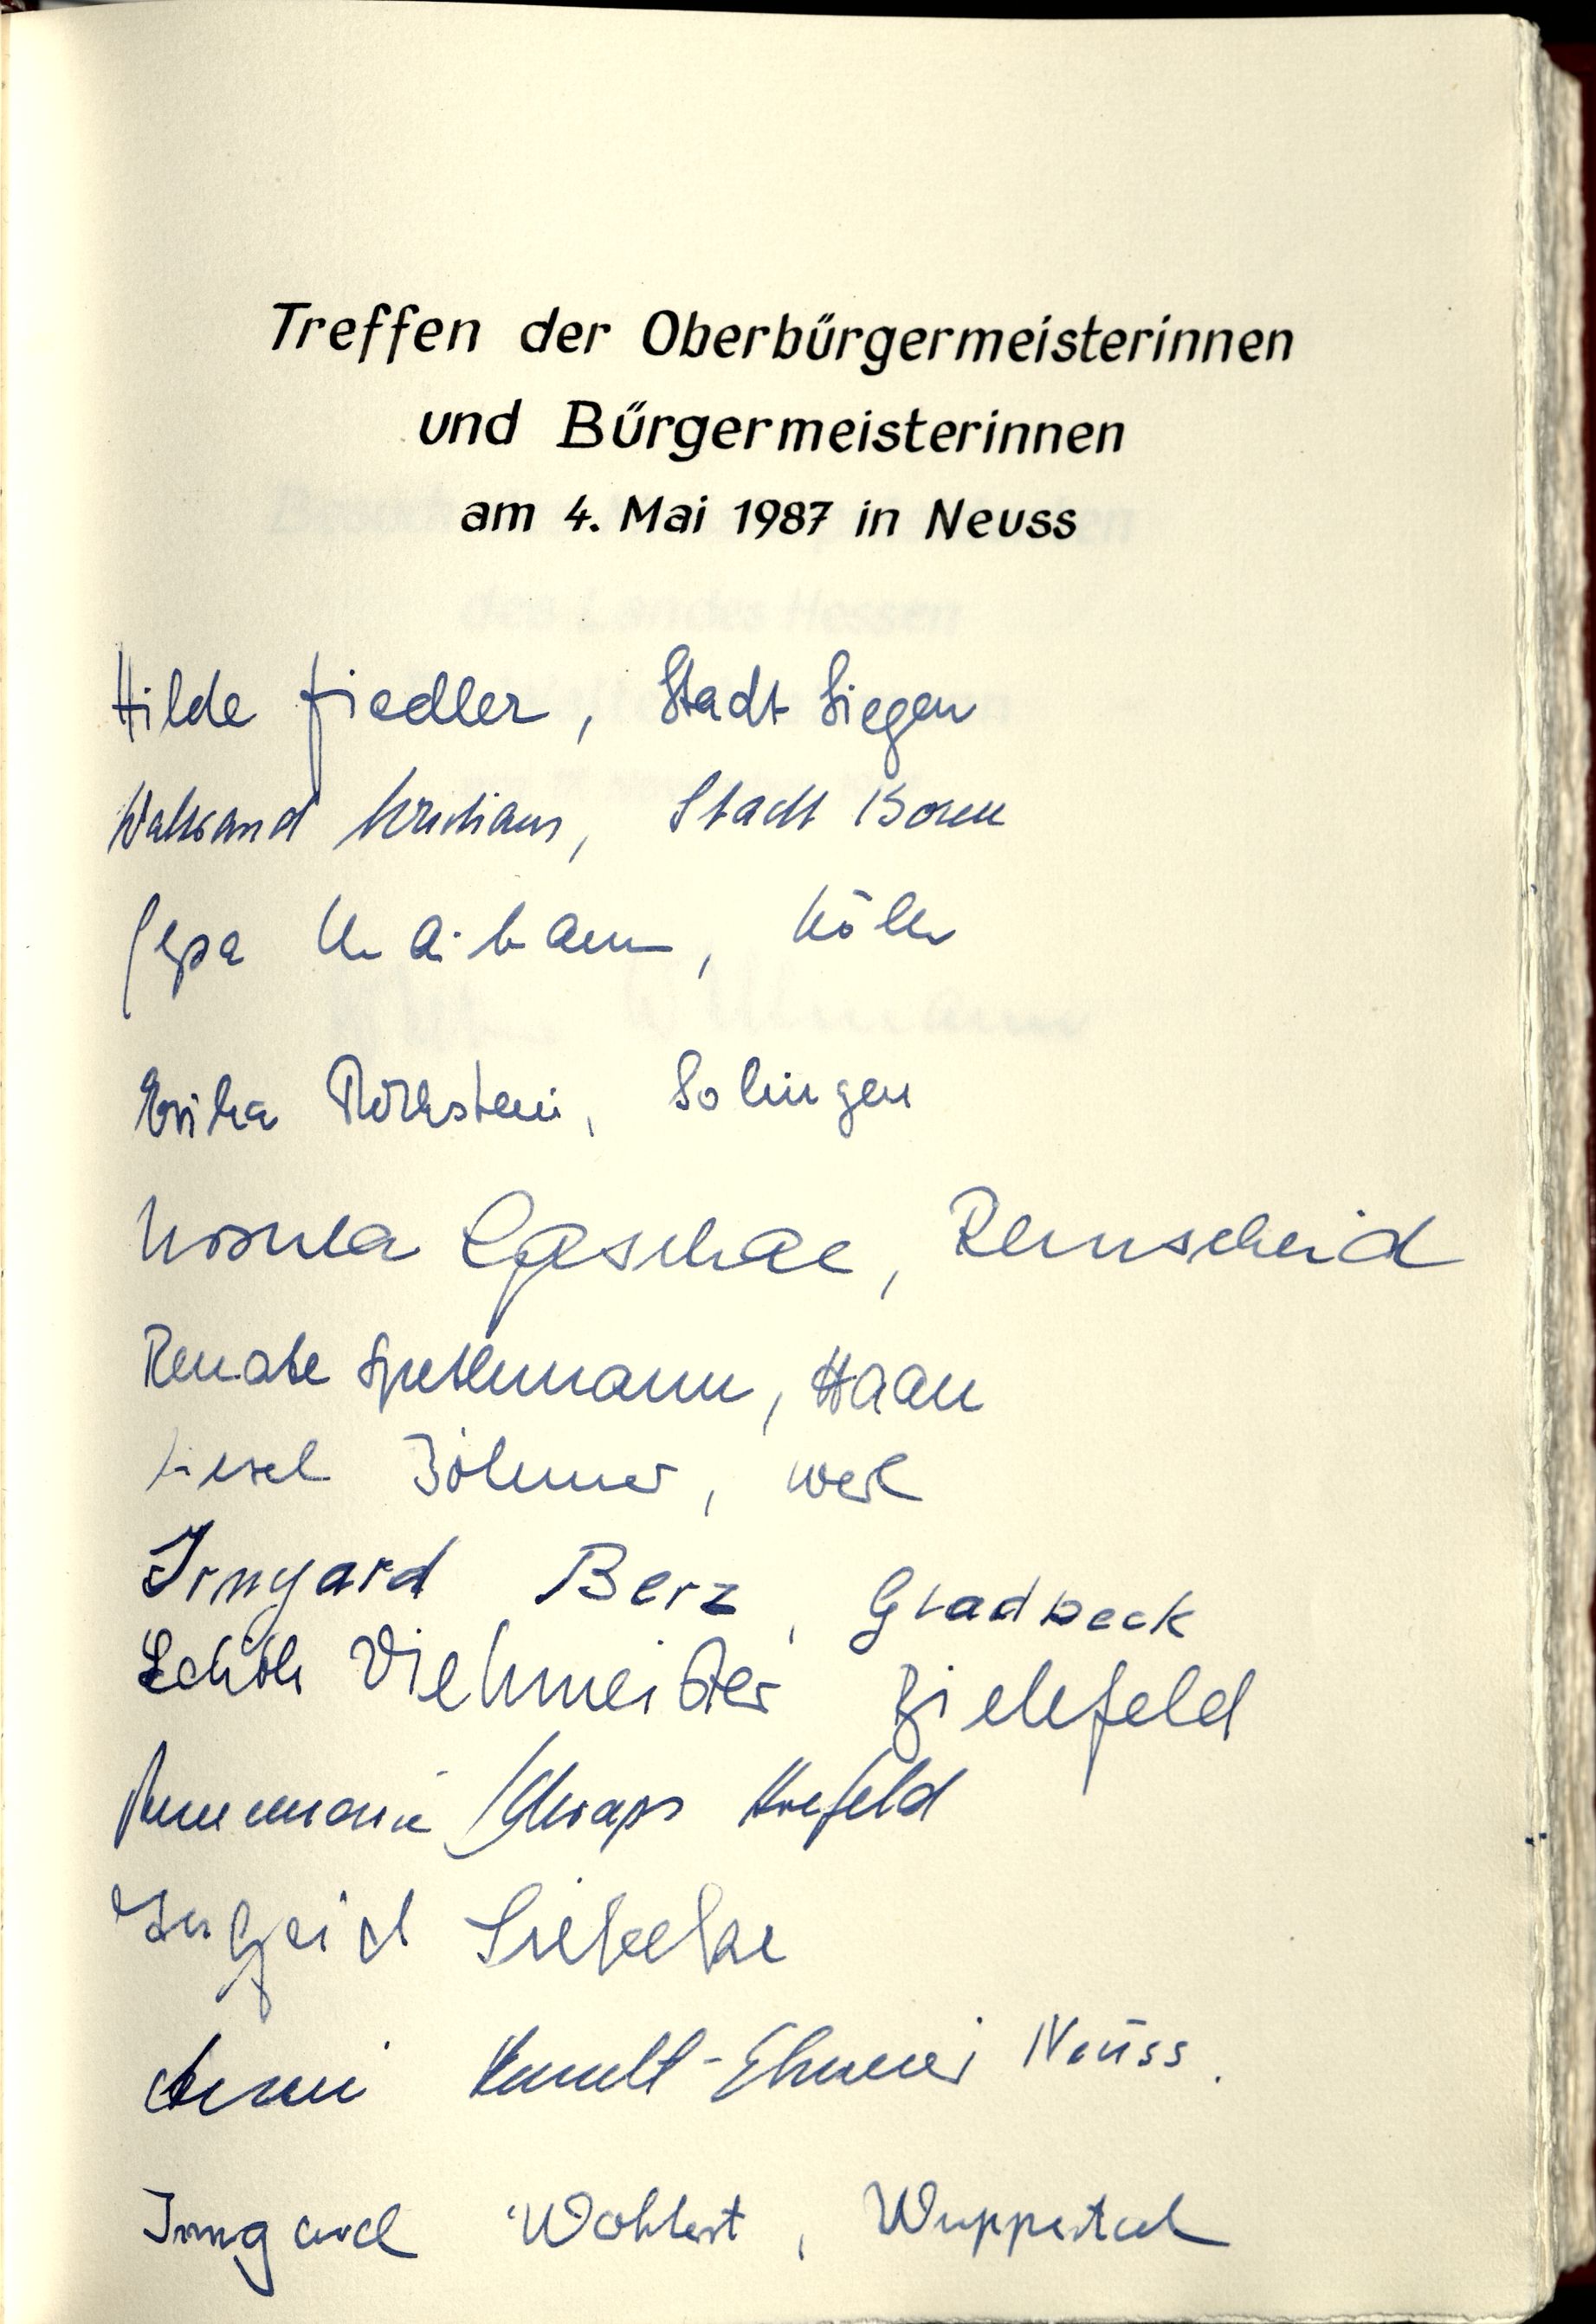 Treffen der Oberbürgermeisterinnen
und Bürgermeisterinnen
am 4. Mai 1987 in Neuss
Hilde Fiedler, Stadt Siegen
Waltraud Christians, Stadt Bonn
Köln
Erika Rothstein, Solingen
Ursula Remscheid
Renate Spethmann, Haan
Liesel Böhmer, Werl
Irmgard Berz, Gladbeck
Viehmeister Bielefeld
Annemarie Schraps Krefeld
Ingrid
Neuss.
Irmgard Wohlert, Wuppertal